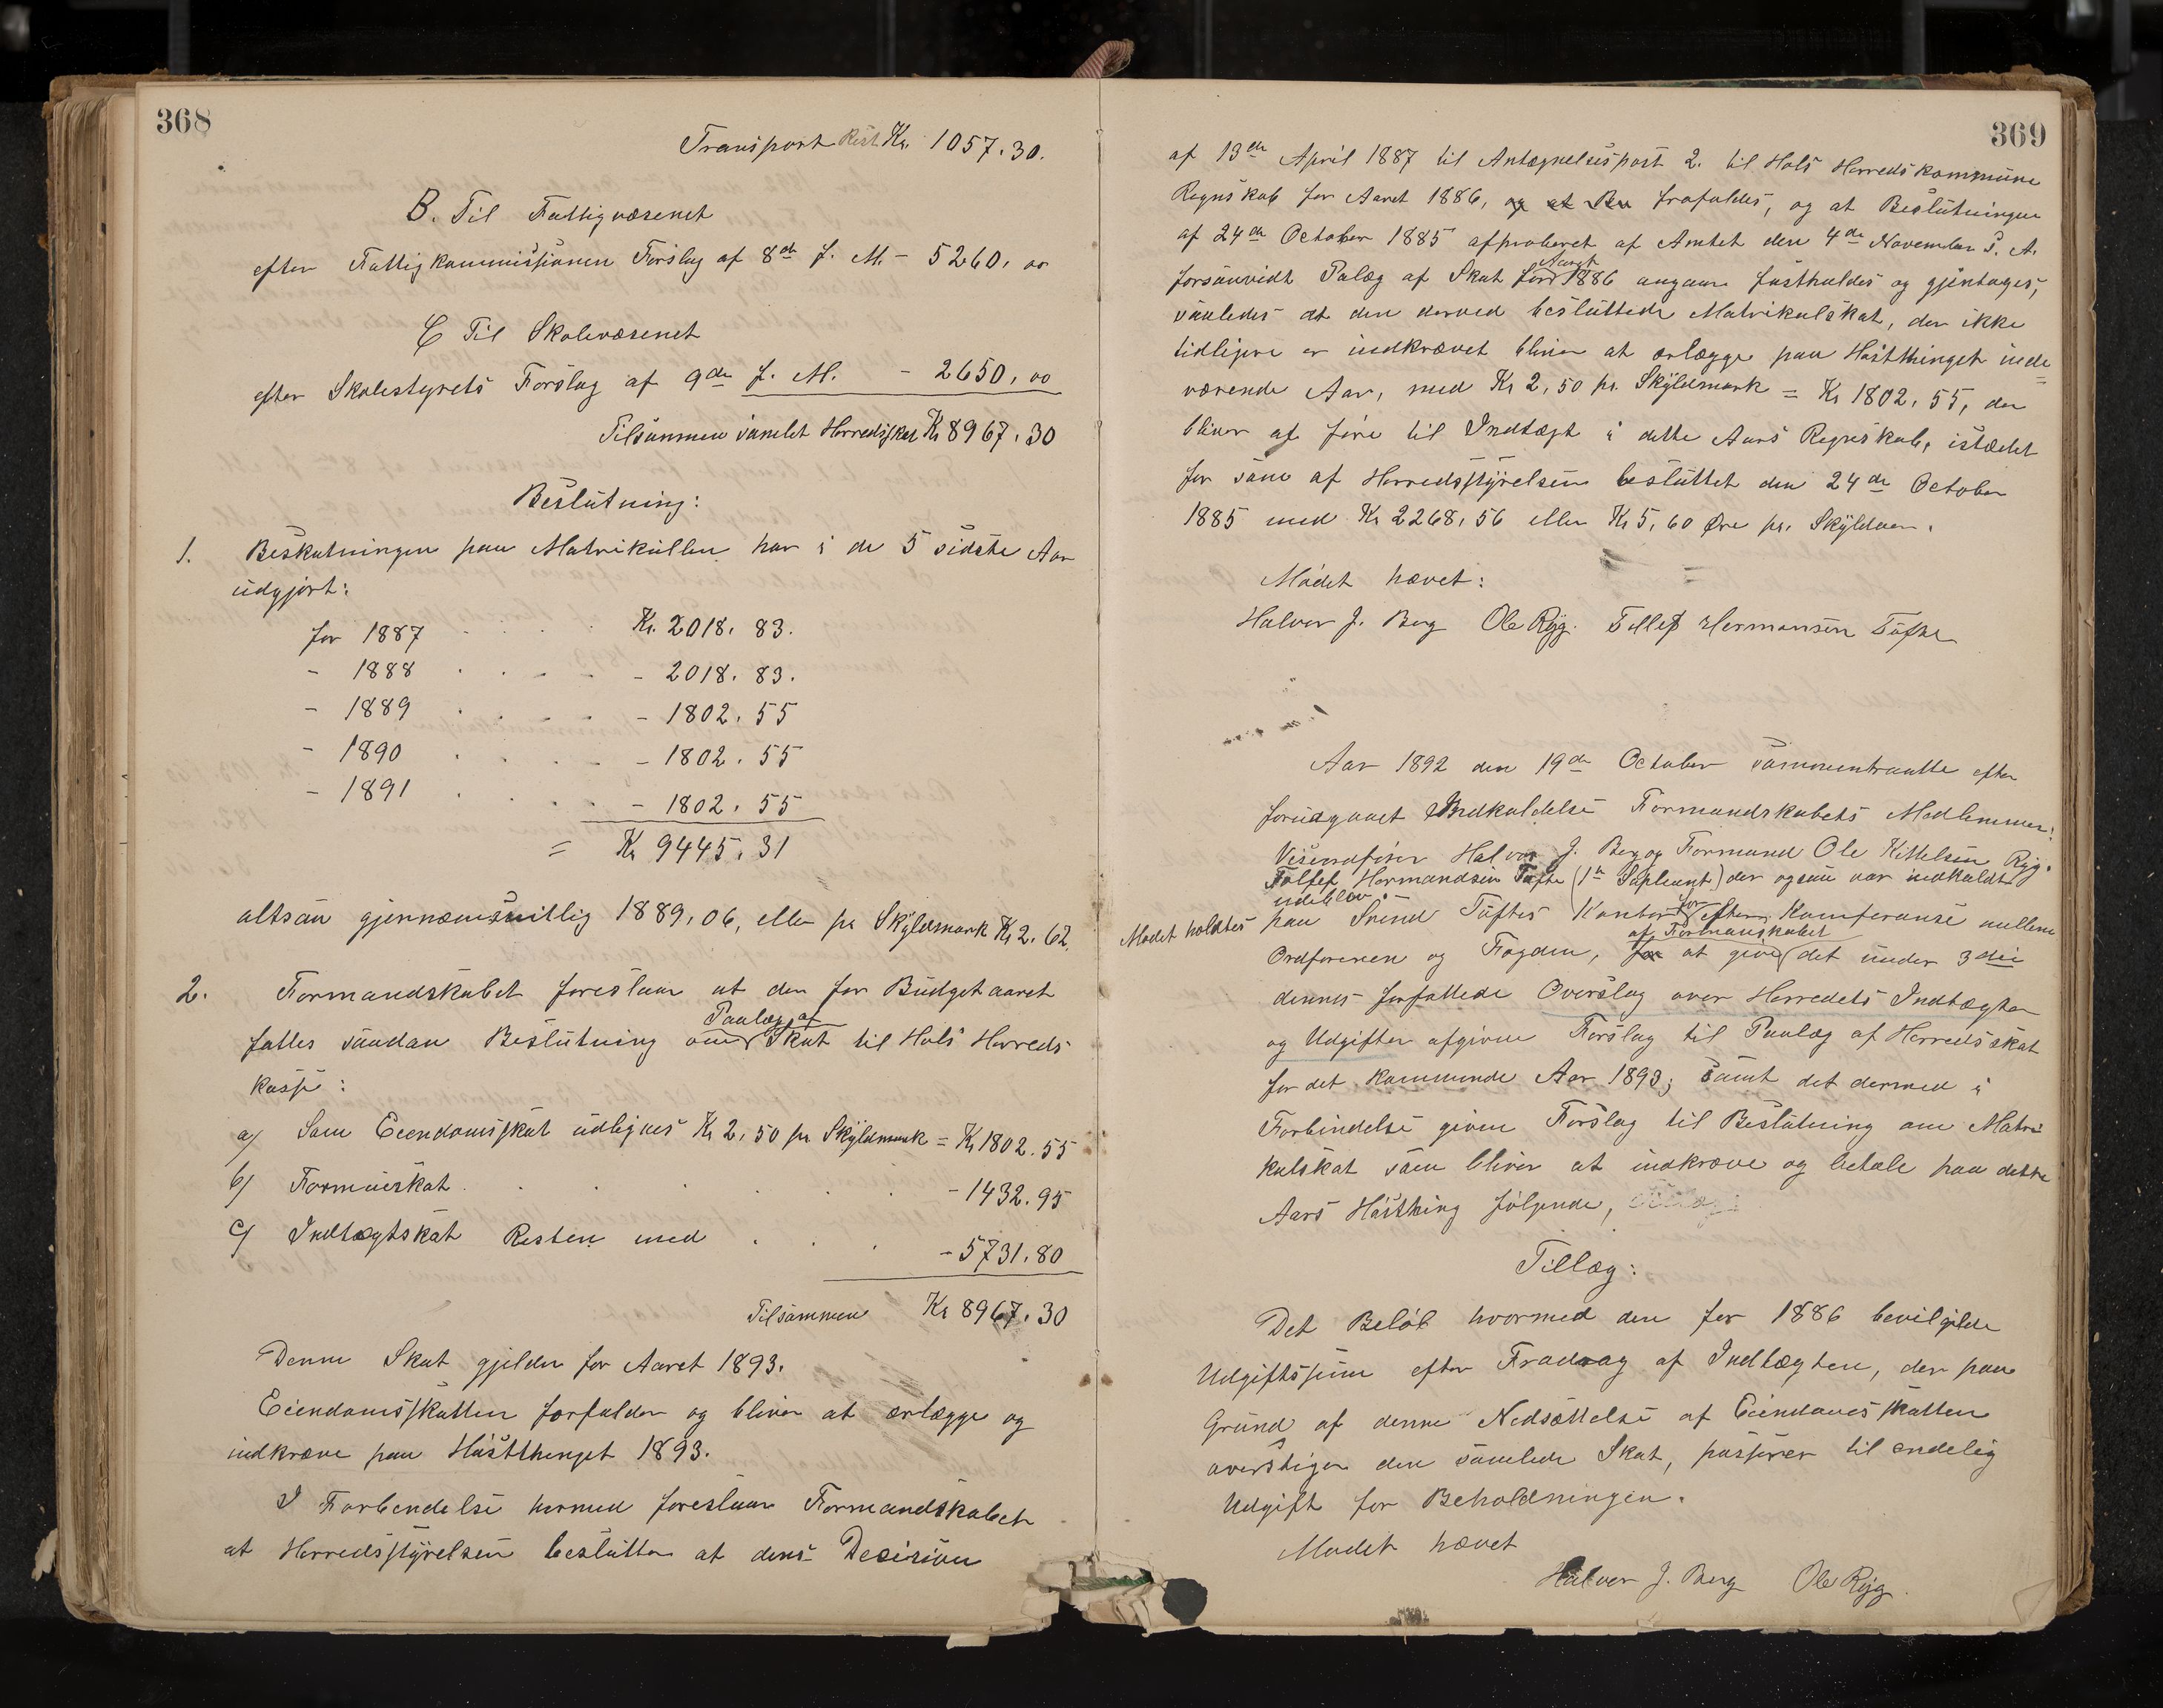 368
Transport Rest Kr. 1057.30.
B. Til Fattigvæsenet
efter Fattigkommissionen Forslag af 8de f. M. - 5260,00
C Til Skolevæsenet
efter Skolestyrets Forslag af 9de f. M. - 2650,00
Tilsammen samlet Herredsskat Kr 8967.30
Beslutning:
1. Beskatningen paa Matrikullen har i de 5 sidste Aar
udgjort:
for 1887 Kr. 2018. 83.
- 1888 - 2018. 83.
- 1889 - 1802. 55
- 1890 - 1802. 55
- 1891 - 1802. 55
= Kr 9445.31
altsaa gjennemsnitlig 1889,06, eller pr Skyldmark Kr 2.62.
2. Formandskabet foreslaar at der for Budgetaaret
fattes saadan Beslutning om Paalæg af Skat til Hols Herreds
kasse:
a) Som Eiendomsskat udlignes Kr 2,50 pr Skyldmark = Kr 1802.55
b) Formueskat - 1432.95
c) Indtægtskat Resten med - 5731.80
Tilsammen Kr 8967.30
Denne Skat gjelder for Aaret 1893.
Eiendomsskatten forfalder og bliver at erlægge og
indkræve paa Høstthinget 1893.
I Forbindelse hermed foreslaar Formandskabet
at Herredsstyrelsen beslutter at dens Decision
369
af 13de April 1887 til Antegnelsespost 2. til Hols Herredskommune
Regnskab for Aaret 1886, og at Be frafaldes, og at Beslutningen
af 24de October 1885 approberet af Amtet den 4de November s. A.
forsaavidt Palæg af Skat for Aaret 1886 angaar fastholdes og gjentages,
saaledes at den derved besluttede Matrikulskat, der ikke
tidligere er indkrævet bliver at erlægge paa Høstthinget inde
værende Aar, med Kr 2,50 pr. Skyldmark = Kr 1802,55, der
bliver at føre til Indtægt i dette Aars Regnskab, istædet
for som af Herredsstyrelsen besluttet den 24de October
1885 med Kr 2268,56 eller Kr 5,60 Øre pr. Skylden.
Mødet hævet:
Halvor J. Berg Ole Ryg. Tollef Hermansen Tufte
Aar 1892 den 19de October sammentraatte efter
forudgaaet Indkaldelse Formandskabets Medlemmer:
Viseordfører Halvor J. Berg og Formand Ole Kittelsen Ryg.
Tollef Hermandsen Tufte (1te Supleant) der ogsaa var indkaldt
udeblev.
Mødet holdtes paa Svend Tuftes Kontor for efter Konferanse mellem
Ordføreren og Fogden, for at give af Formanskabet det under 3die
dennes forfattede Overslag over Herredets Indtægter
og Udgifter afgivne Forslag til Paalæg af Herredsskat
for det kommende Aar 1893; samt det dermed i
Forbindelse given Forslag til Beslutning om Matri
kulskat som bliver at indkræve og betale paa dette
Aars Høstthing følgende,
Tillæg:
Det Beløb hvormed den for 1886 bevilgede
Udgiftssum efter Fradrag af Indtægten, der paa
Grund af denne Nedsættelse af Eiendomsskatten
overstiger den samlede Skat, passerer til endelig
Udgift for Beholdningen.
Mødet hævet
Halvor J. Berg Ole Ryg.